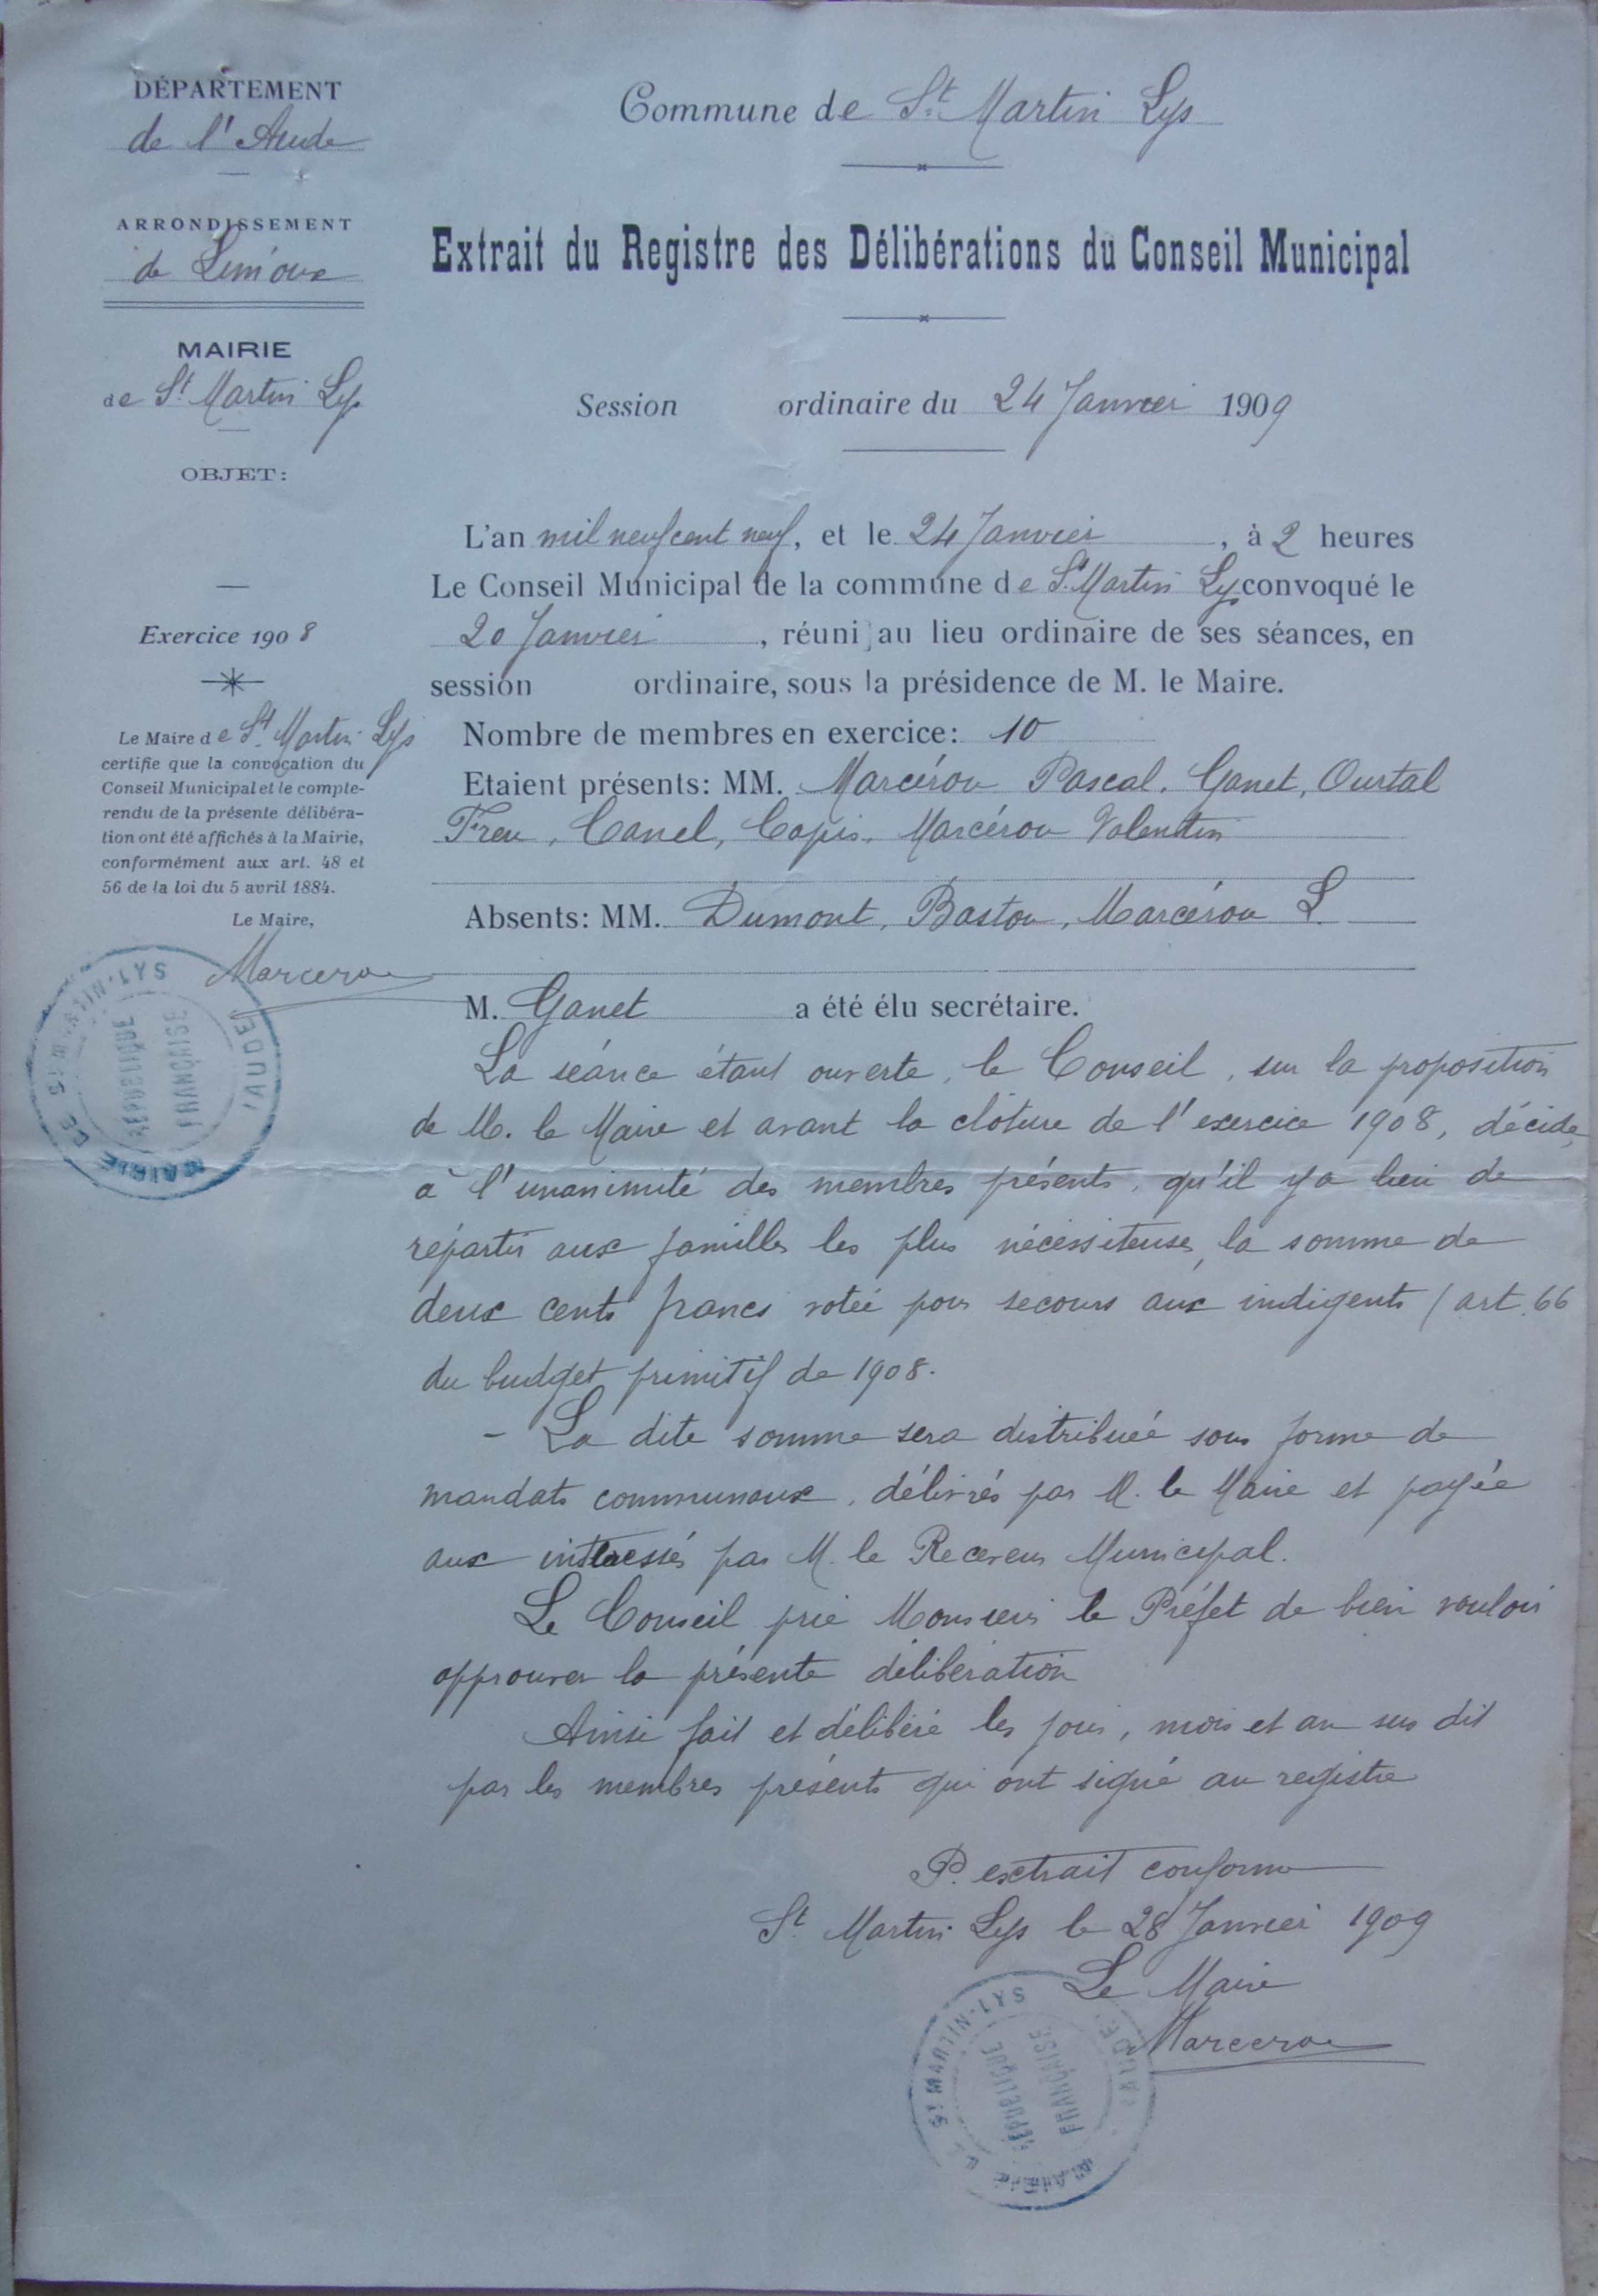 DÉPARTEMENT
de l'Aude
ARRONDISSEMENT
de Limoux
MAIRIE
de St Martin Lys
OBJET:
Exercice 1908
Le Maire de St Martin Lys
certifie que la convocation du
Conseil Municipal et le compte-
rendu de la présente délibéra-
tion ont été affichés à la Mairie,
conformément aux art. 48 et
56 de la loi du 5 avril 1884.
Le Maire,
Marcerou
MAIRIE DE St MARTIN-LYS (AUDE)
RÉPUBLIQUE
FRANÇAISE
Commune de St Martin Lys
Extrait du Registre des Délibérations du Conseil Municipal
Session ordinaire du 24 Janvier 1909
L'an mil neuf cent neuf, et le 24 Janvier, à 2 heures
Le Conseil Municipal de la commune de St Martin Lys convoqué le
20 Janvier, réuni au lieu ordinaire de ses séances, en
session ordinaire, sous la présidence de M. le Maire.
Nombre de membres en exercice: 10
Etaient présents: MM. Marcérou Pascal, Ganet, Ourtal
Freu, Canel, Capis, Marcérou Valentin
Absents: MM. Dumont, Bastou, Marcérou L.
M. Ganet a été élu secrétaire.
La séance étant ouverte, le Conseil, sur la proposition
de M. le Maire et avant la clôture de l'exercice 1908, décide,
à l'unanimité des membres présents, qu'il y a lieu de
répartir aux familles les plus nécessiteuses, la somme de
deux cents francs votée pour secours aux indigents (art. 66
du budget primitif de 1908.
- La dite somme sera distribuée sous forme de
mandats communaux, délivrés par M. le Maire et payée
aux intéressés par M. le Receveur Municipal.
Le Conseil prie Monsieur le Préfet de bien vouloir
approuver la présente délibération
Ainsi fait et délibéré les jour, mois et an sus dit
par les membres présents qui ont signé au registre
P. extrait conforme
St Martin Lys le 28 Janvier 1909
Le Maire
Marcerou
MAIRIE DE St MARTIN-LYS (AUDE)
RÉPUBLIQUE
FRANÇAISE